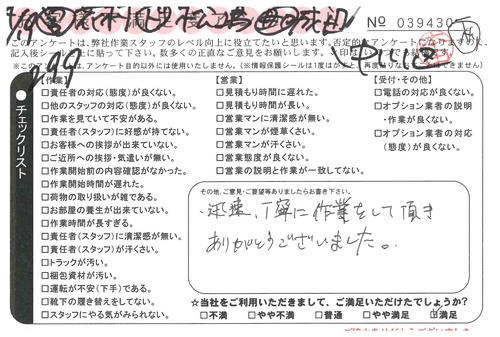 お客様不満足度調査
No 039430
このアンケートは、弊社作業スタッフのレベル向上に役立てたいと思います。否定的なアンケートになりますので、
記入後シールを上に貼って下さい。数多くの正直なご意見を
※これは、アンケート目的以外には使用いたしません。(※情報保護シールは1度はがすと、再度貼りなおすことはできません)
チェックリスト
【作業】
□責任者の対応(態度)が良くない。
□他のスタッフの対応(態度)が良くない。
□作業を見ていて不安がある。
□責任者(スタッフ)に好感が持てない。
□お客様への挨拶が出来ていない。
□ご近所への挨拶・気遣いが無い。
□作業開始前の内容確認がなかった。
□作業開始時間が遅れた。
□荷物の取り扱いが雑である。
□お部屋の養生が出来ていない。
□作業時間が長すぎる。
□責任者(スタッフ)に清潔感が無い。
□責任者(スタッフ)が汗くさい。
□トラックが汚い。
□梱包資材が汚い。
□運転が不安(下手)である。
□靴下の履き替えをしてない。
□スタッフにやる気がみられない。
【営業】
□見積もり時間に遅れた。
□見積もり時間が長い。
□営業マンに清潔感が無い。
□営業マンが煙草くさい。
□営業マンが汗くさい。
□営業態度が良くない。
□営業の説明と作業が一致してない。
【受付・その他】
□電話の対応が良くない。
□オプション業者の説明
・作業が良くない。
□オプション業者の対応
(態度)が良くない。
その他、ご意見・ご要望等ありましたらお書き下さい。
迅速、丁寧に作業をして頂き
ありがとうございました。
☆当社をご利用いただきまして、ご満足いただけたでしょうか?
□不満 □やや不満 □普通 □やや満足 ☑満足